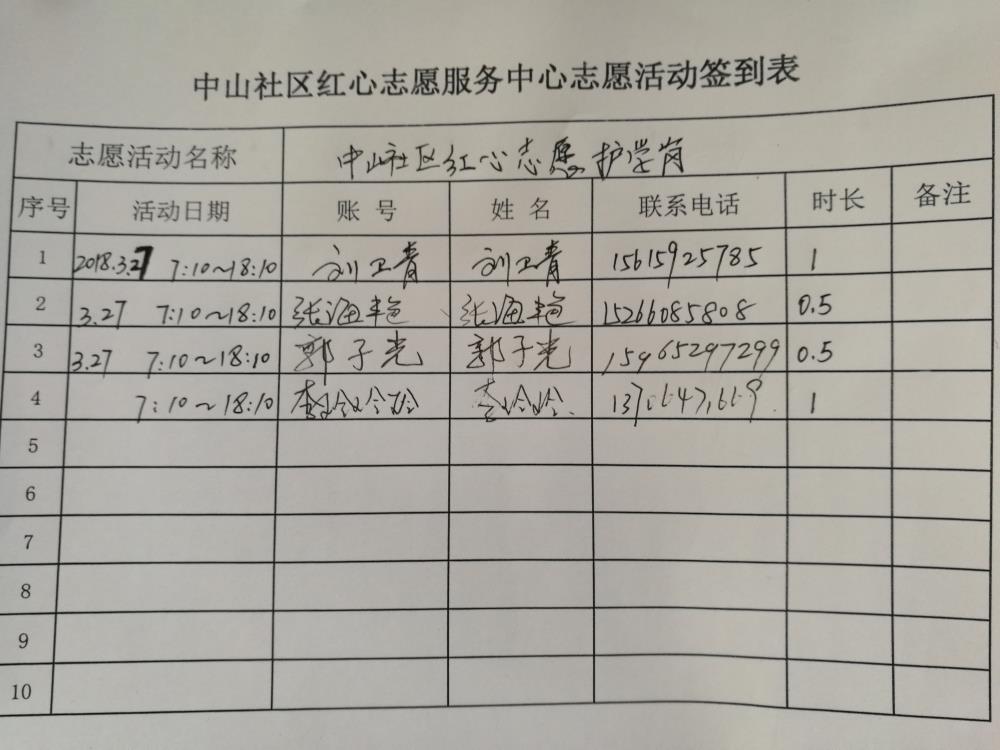 中山社区红心志愿服务中心志愿活动签到表
志愿活动名称 中山社区红心志愿护学岗
序号 活动日期 账号 姓名 联系电话 时长 备注
1 2018.3.27 7:10~18:10 刘卫青 刘卫青 15615925785 1
2 3.27 7:10~18:10 张海艳 张海艳 15266085808 0.5
3 3.27 7:10~18:10 郭子光 郭子光 15965297299 0.5
4 7:10~18:10 李玲玲 1
5
6
7
8
9
10